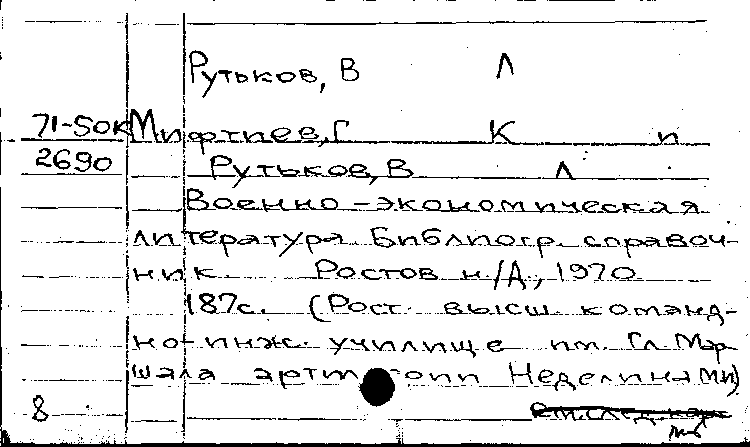 Рутьков, В Л
71-50к Мифтиев, Г К и
2690 Рутьков, В Л
Военно-экономическая
литература Библиогр. справоч-
ник. Ростов н/Д, 1970
187с. (Рост. высш. команд-
но-инж. училище им. Гл Мар
шала Неделина МИ)
8